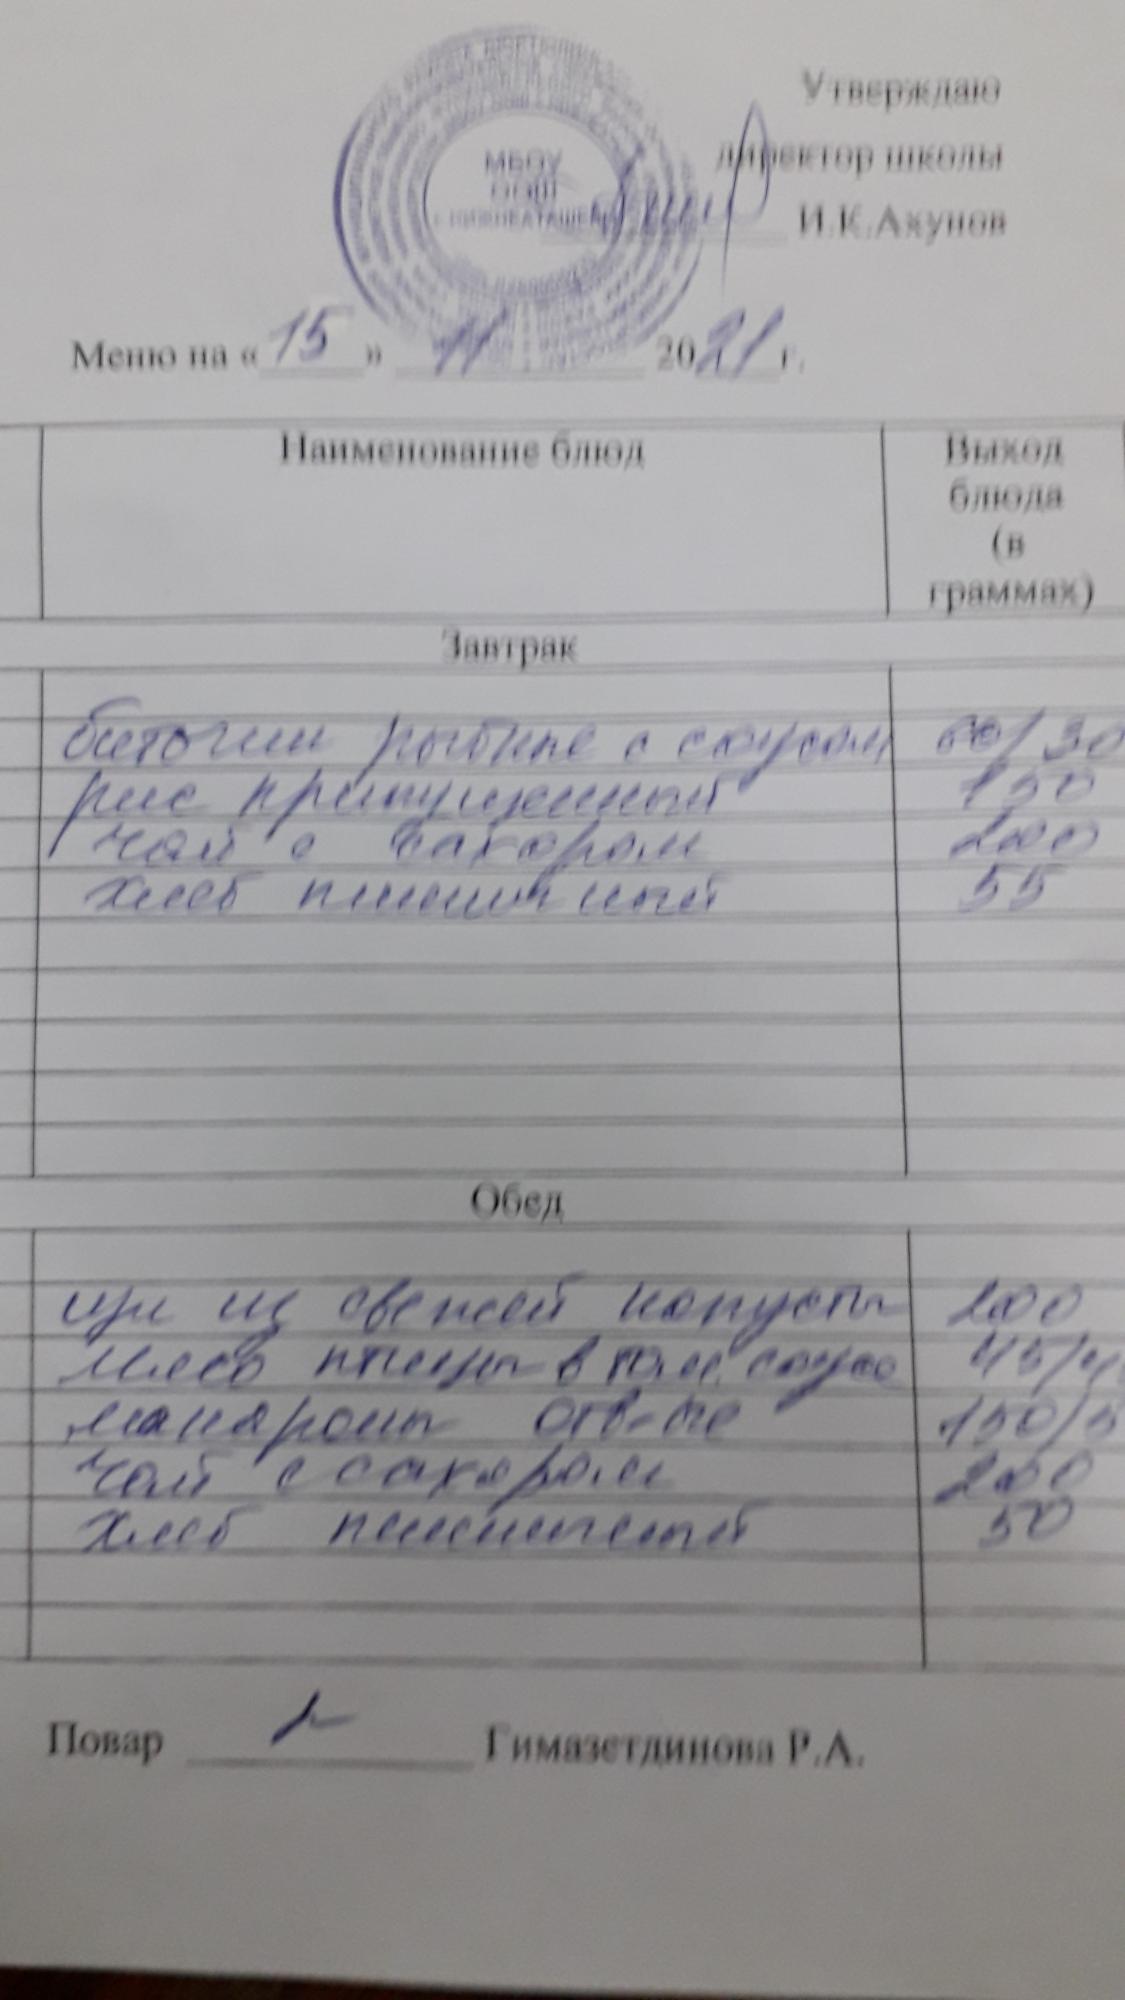 Утверждаю
директор школы
МБОУ
ООШ
И.К.Ахунов
Меню на «15» 11 2021 г.
Наименование блюд
Выход
блюда
(в
граммах)
Завтрак
биточки рыбные с соусом 60/30
рис припущенный 150
чай с сахаром 200
хлеб пшеничный 55
Обед
щи из свежей капусты 200
мясо птицы в том. соусе 45/4
макароны отв-ые 150/5
чай с сахаром 200
хлеб пшеничный 50
Повар Гимазетдинова Р.А.